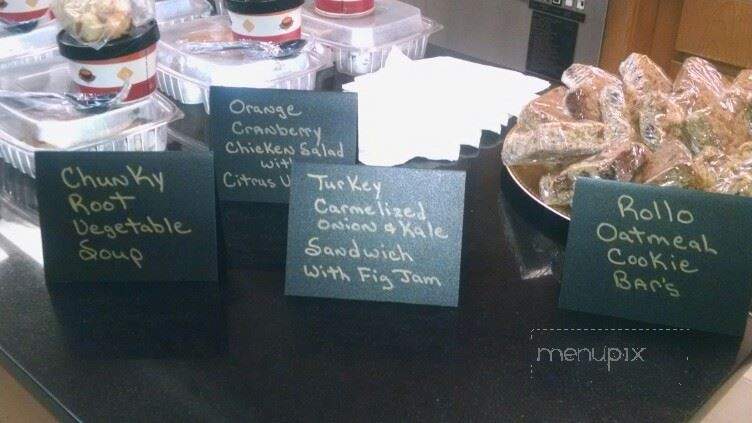 Chunky
Root
Vegetable
Soup
Orange
Cranberry
Chicken Salad
with
Citrus
Turkey
Carmelized
Onion & Kale
Sandwich
With Fig Jam
Rollo
Oatmeal
Cookie
Bar's
menupix